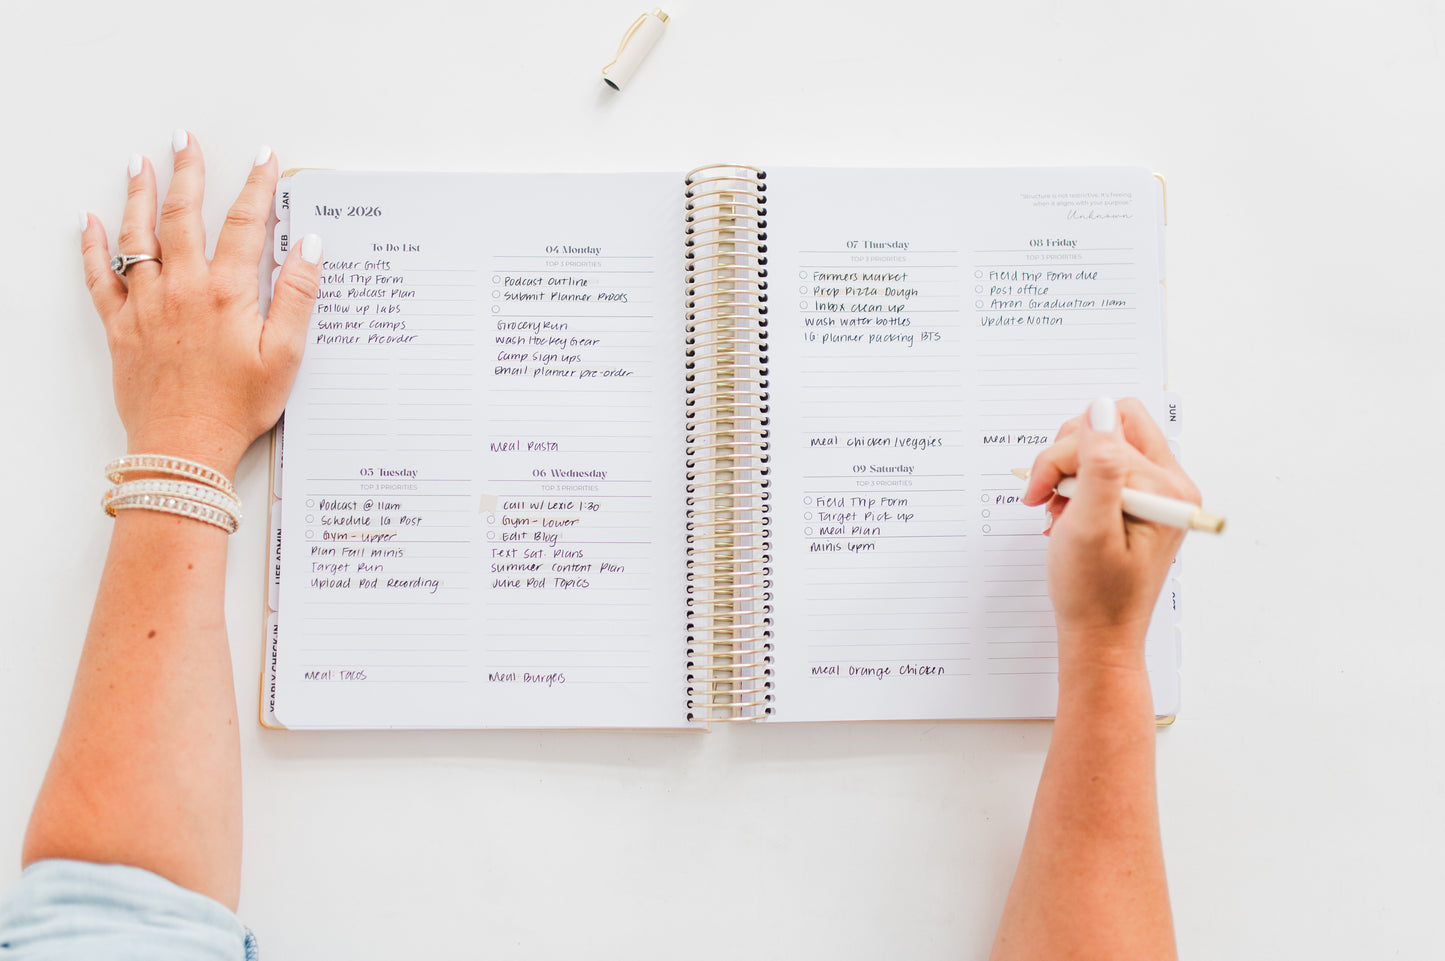 JAN
FEB
LIFE ADMIN
YEARLY CHECK-IN
May 2026
To Do List
Teacher Gifts
Field Trip Form
June Podcast Plan
Follow up labs
Summer Camps
Planner Preorder
04 Monday
TOP 3 PRIORITIES
Podcast Outline
Submit Planner Proofs
Grocery Run
Wash Hockey Gear
Camp Sign ups
Email planner pre-order
Meal Pasta
05 Tuesday
TOP 3 PRIORITIES
Podcast @ 11am
Schedule IG Post
Gym - Upper
Plan Fall minis
Target Run
Upload Pod Recording
Meal: Tacos
06 Wednesday
TOP 3 PRIORITIES
Call w/ Lexie 1:30
Gym - Lower
Edit Blog
Text Sat. Plans
Summer Content Plan
June Pod Topics
Meal: Burgers
"Structure is not restrictive. It's freeing
when it aligns with your purpose."
Unknown
07 Thursday
TOP 3 PRIORITIES
Farmers Market
Prep Pizza Dough
Inbox clean up
Wash water bottles
IG planner packing BTS
Meal Chicken/Veggies
08 Friday
TOP 3 PRIORITIES
Field Trip Form due
Post office
Arron Graduation 11am
Update Notion
Meal Pizza
09 Saturday
TOP 3 PRIORITIES
Field Trip Form
Target Pick up
Meal Plan
Minis 6pm
Meal Orange Chicken
Plan
JUN